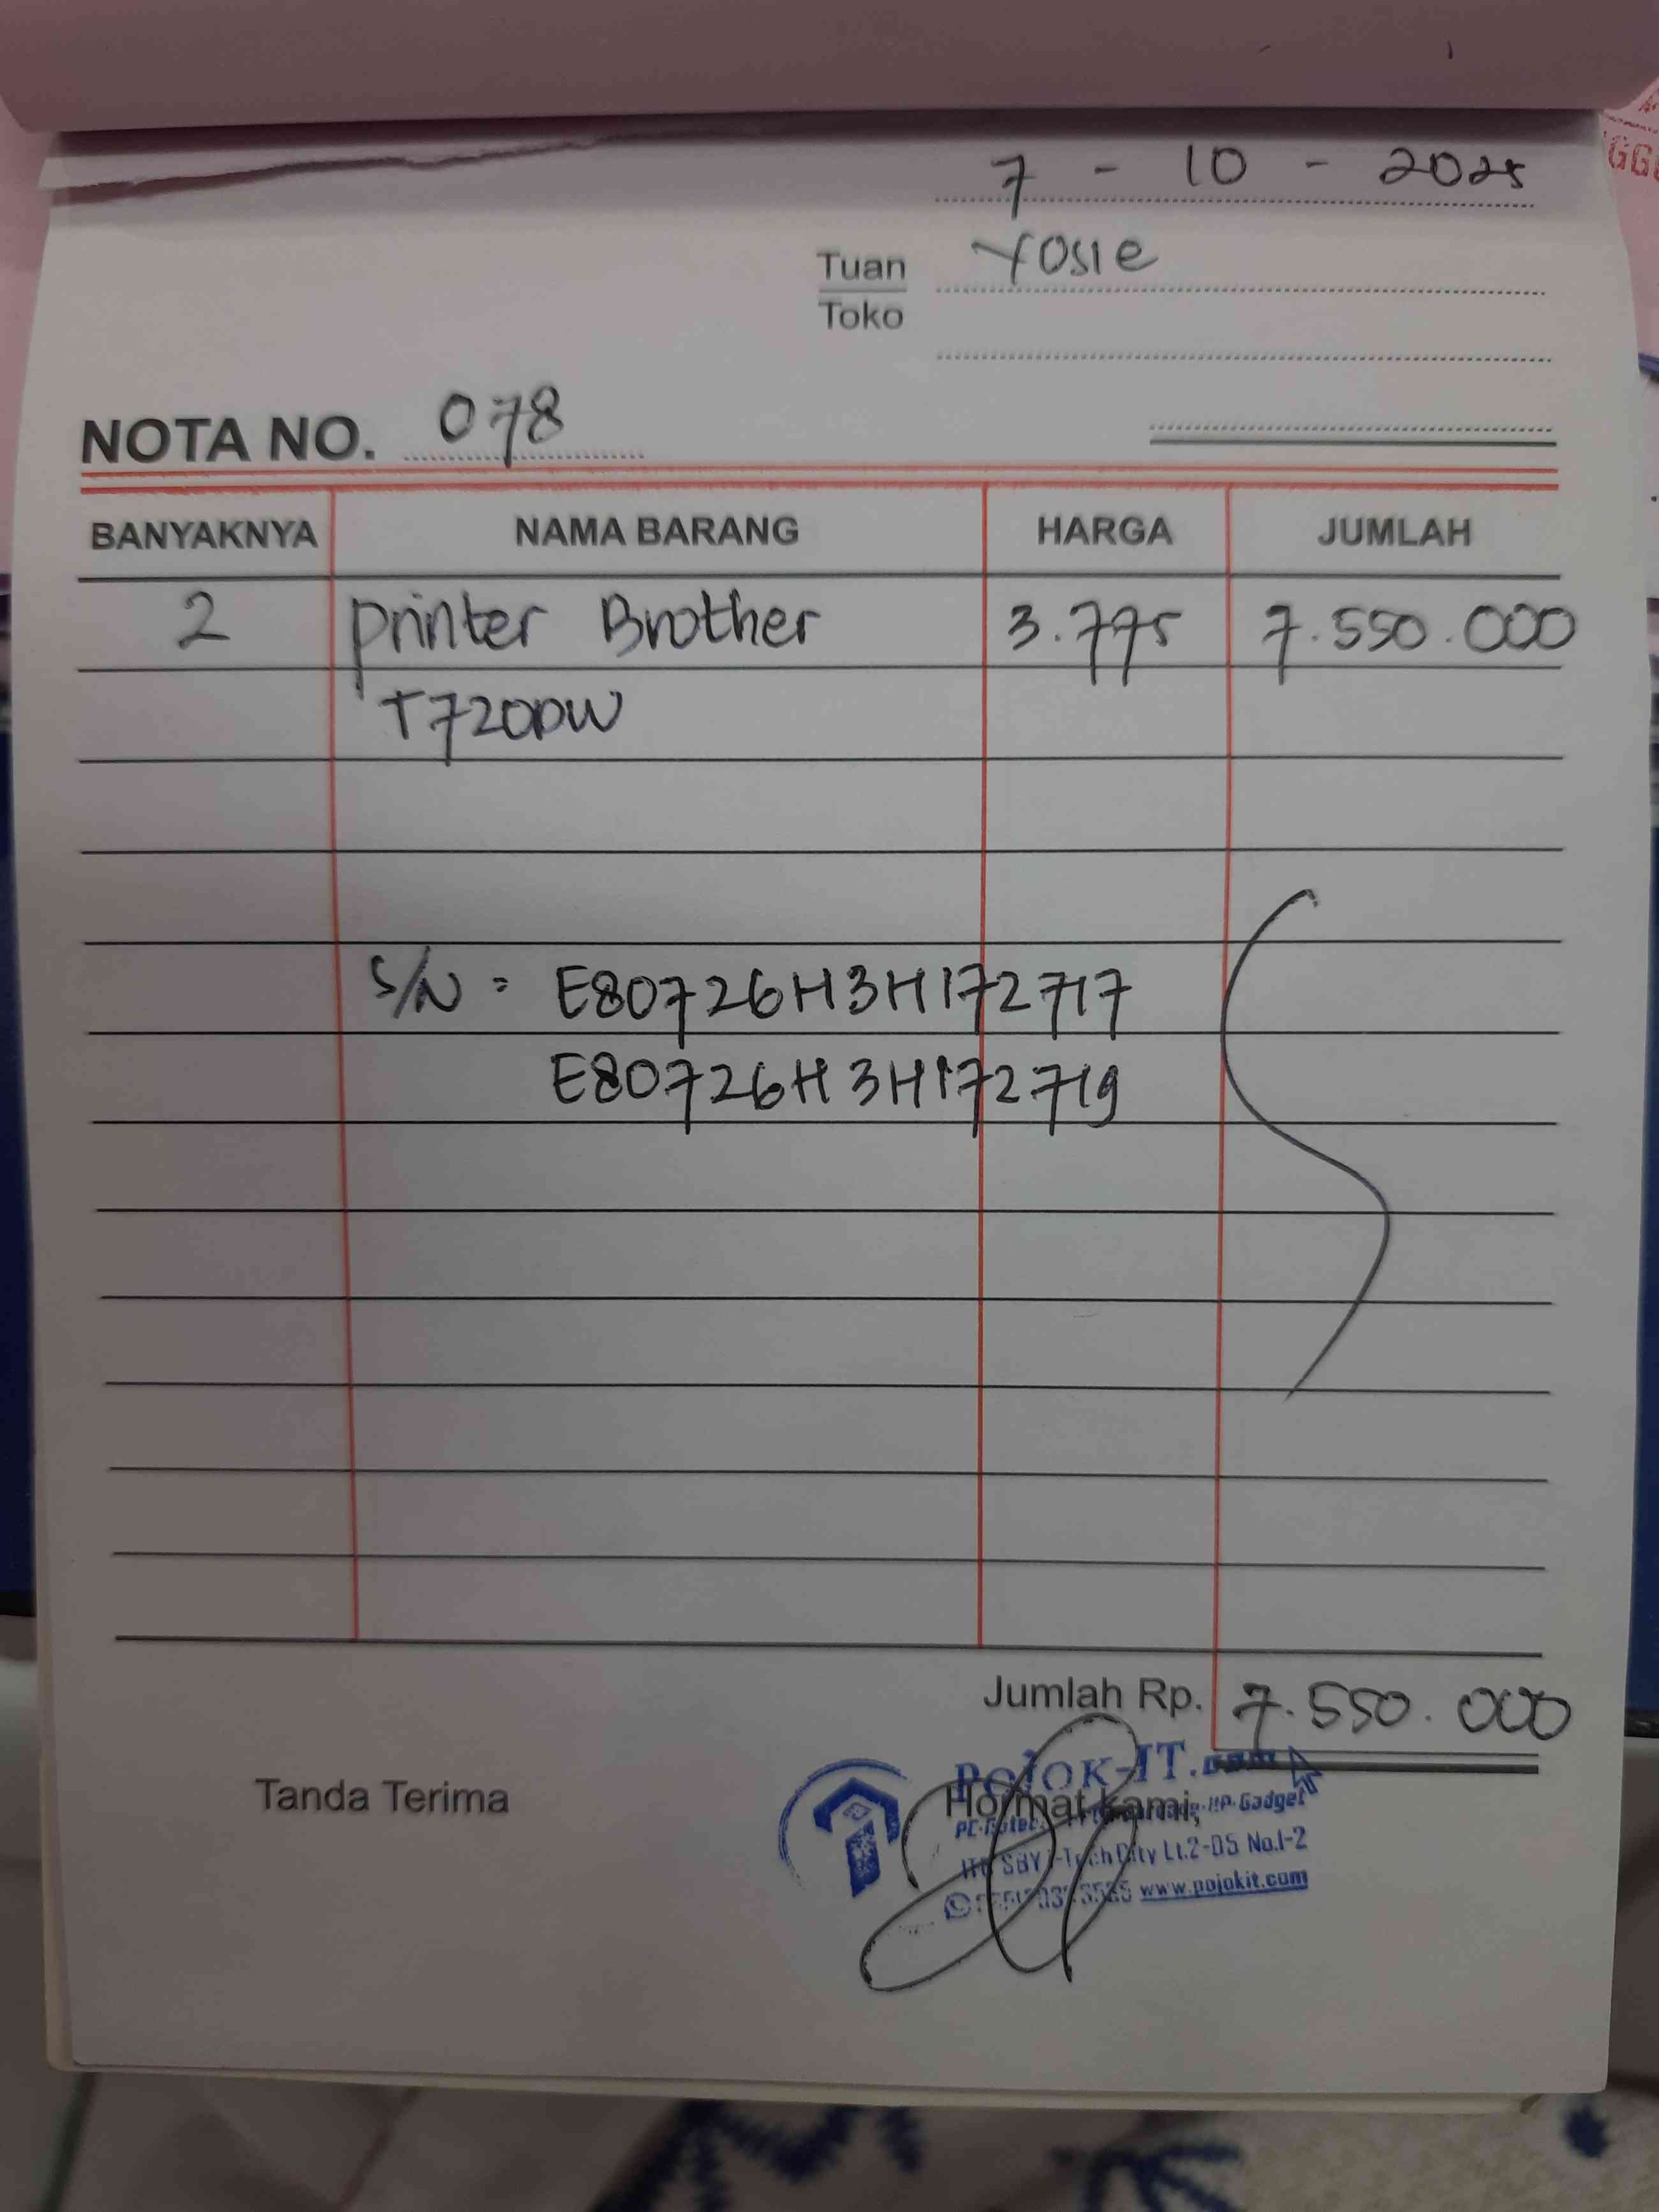 7 - 10 - 2025
Tuan Yosie
Toko
NOTA NO. 078
BANYAKNYA NAMA BARANG HARGA JUMLAH
2 Printer Brother 3.775 7.550.000
T720DW
S/N = E80726H3H172717
E80726H3H172719
Jumlah Rp. 7.550.000
Tanda Terima
Hormat Kami,
POJOK-IT.com
HP-Gadget
SBY Lt.2-D5 No.1-2
www.pojokit.com